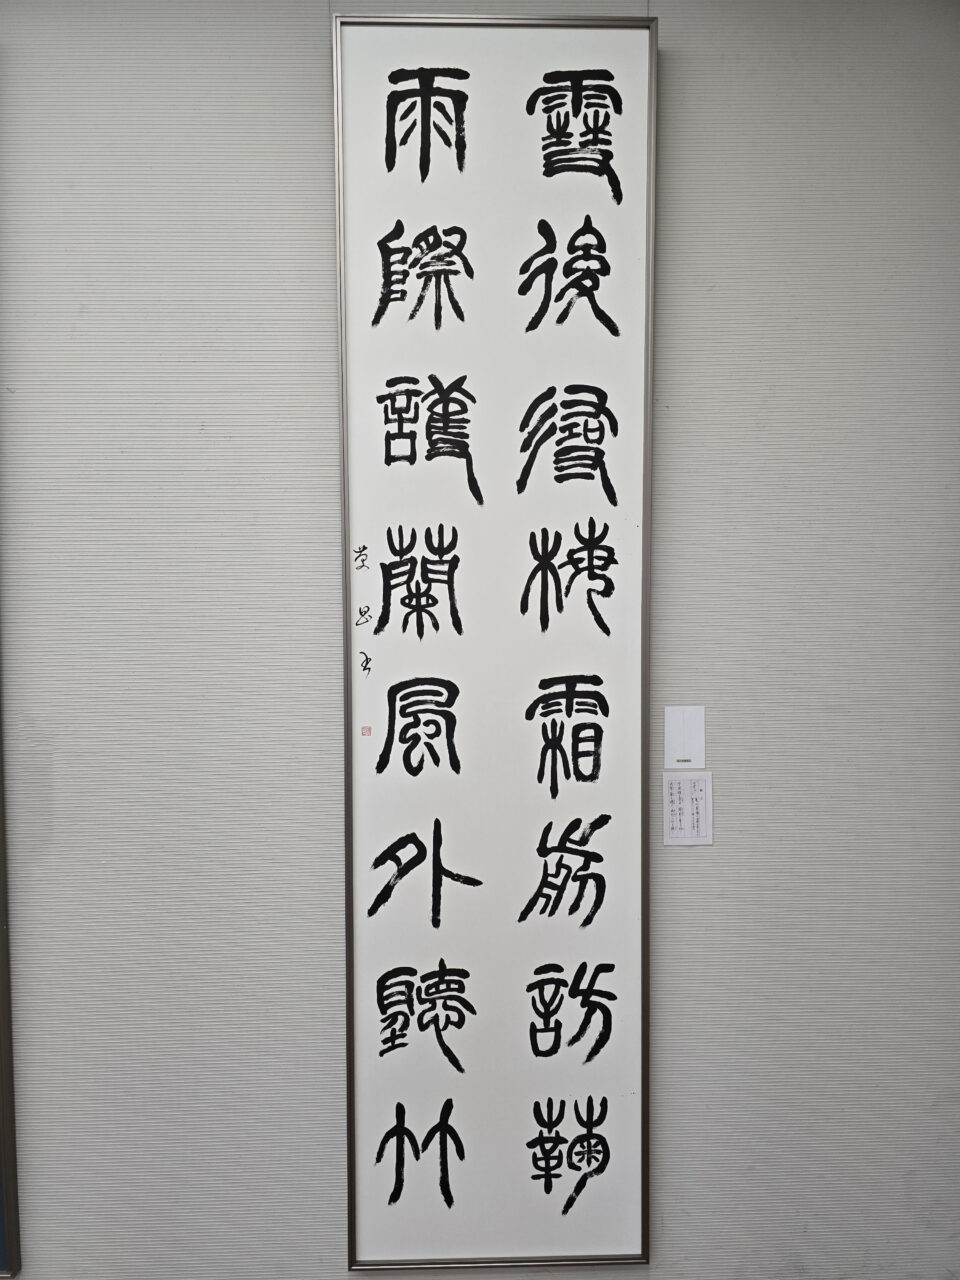 雪後尋梅霜前訪菊
雨際護蘭風外聽竹